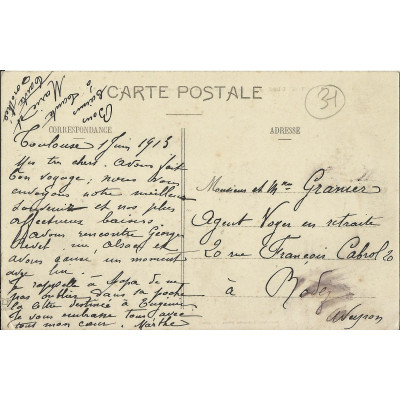 CARTE POSTALE
31
CORRESPONDANCE
ADRESSE
Bons
à toute
Marie et
Toulouse 1 Juin 1913
Mes très chers. Avons fait
bon voyage; nous vous
envoyons notre meilleur
souvenir et nos plus
affectueux baisers
Avons rencontré George
et
avons causé un moment
avec lui.
Je rappelle à Papa de ne
pas oublier dans sa poche
la lettre destinée à Eugénie
Je vous embrasse tous avec
tout mon cœur. Marthe
Monsieur et Mme Granier
Agent Voyer en retraite
20 rue François Cabrol 20
à Rodez
Aveyron